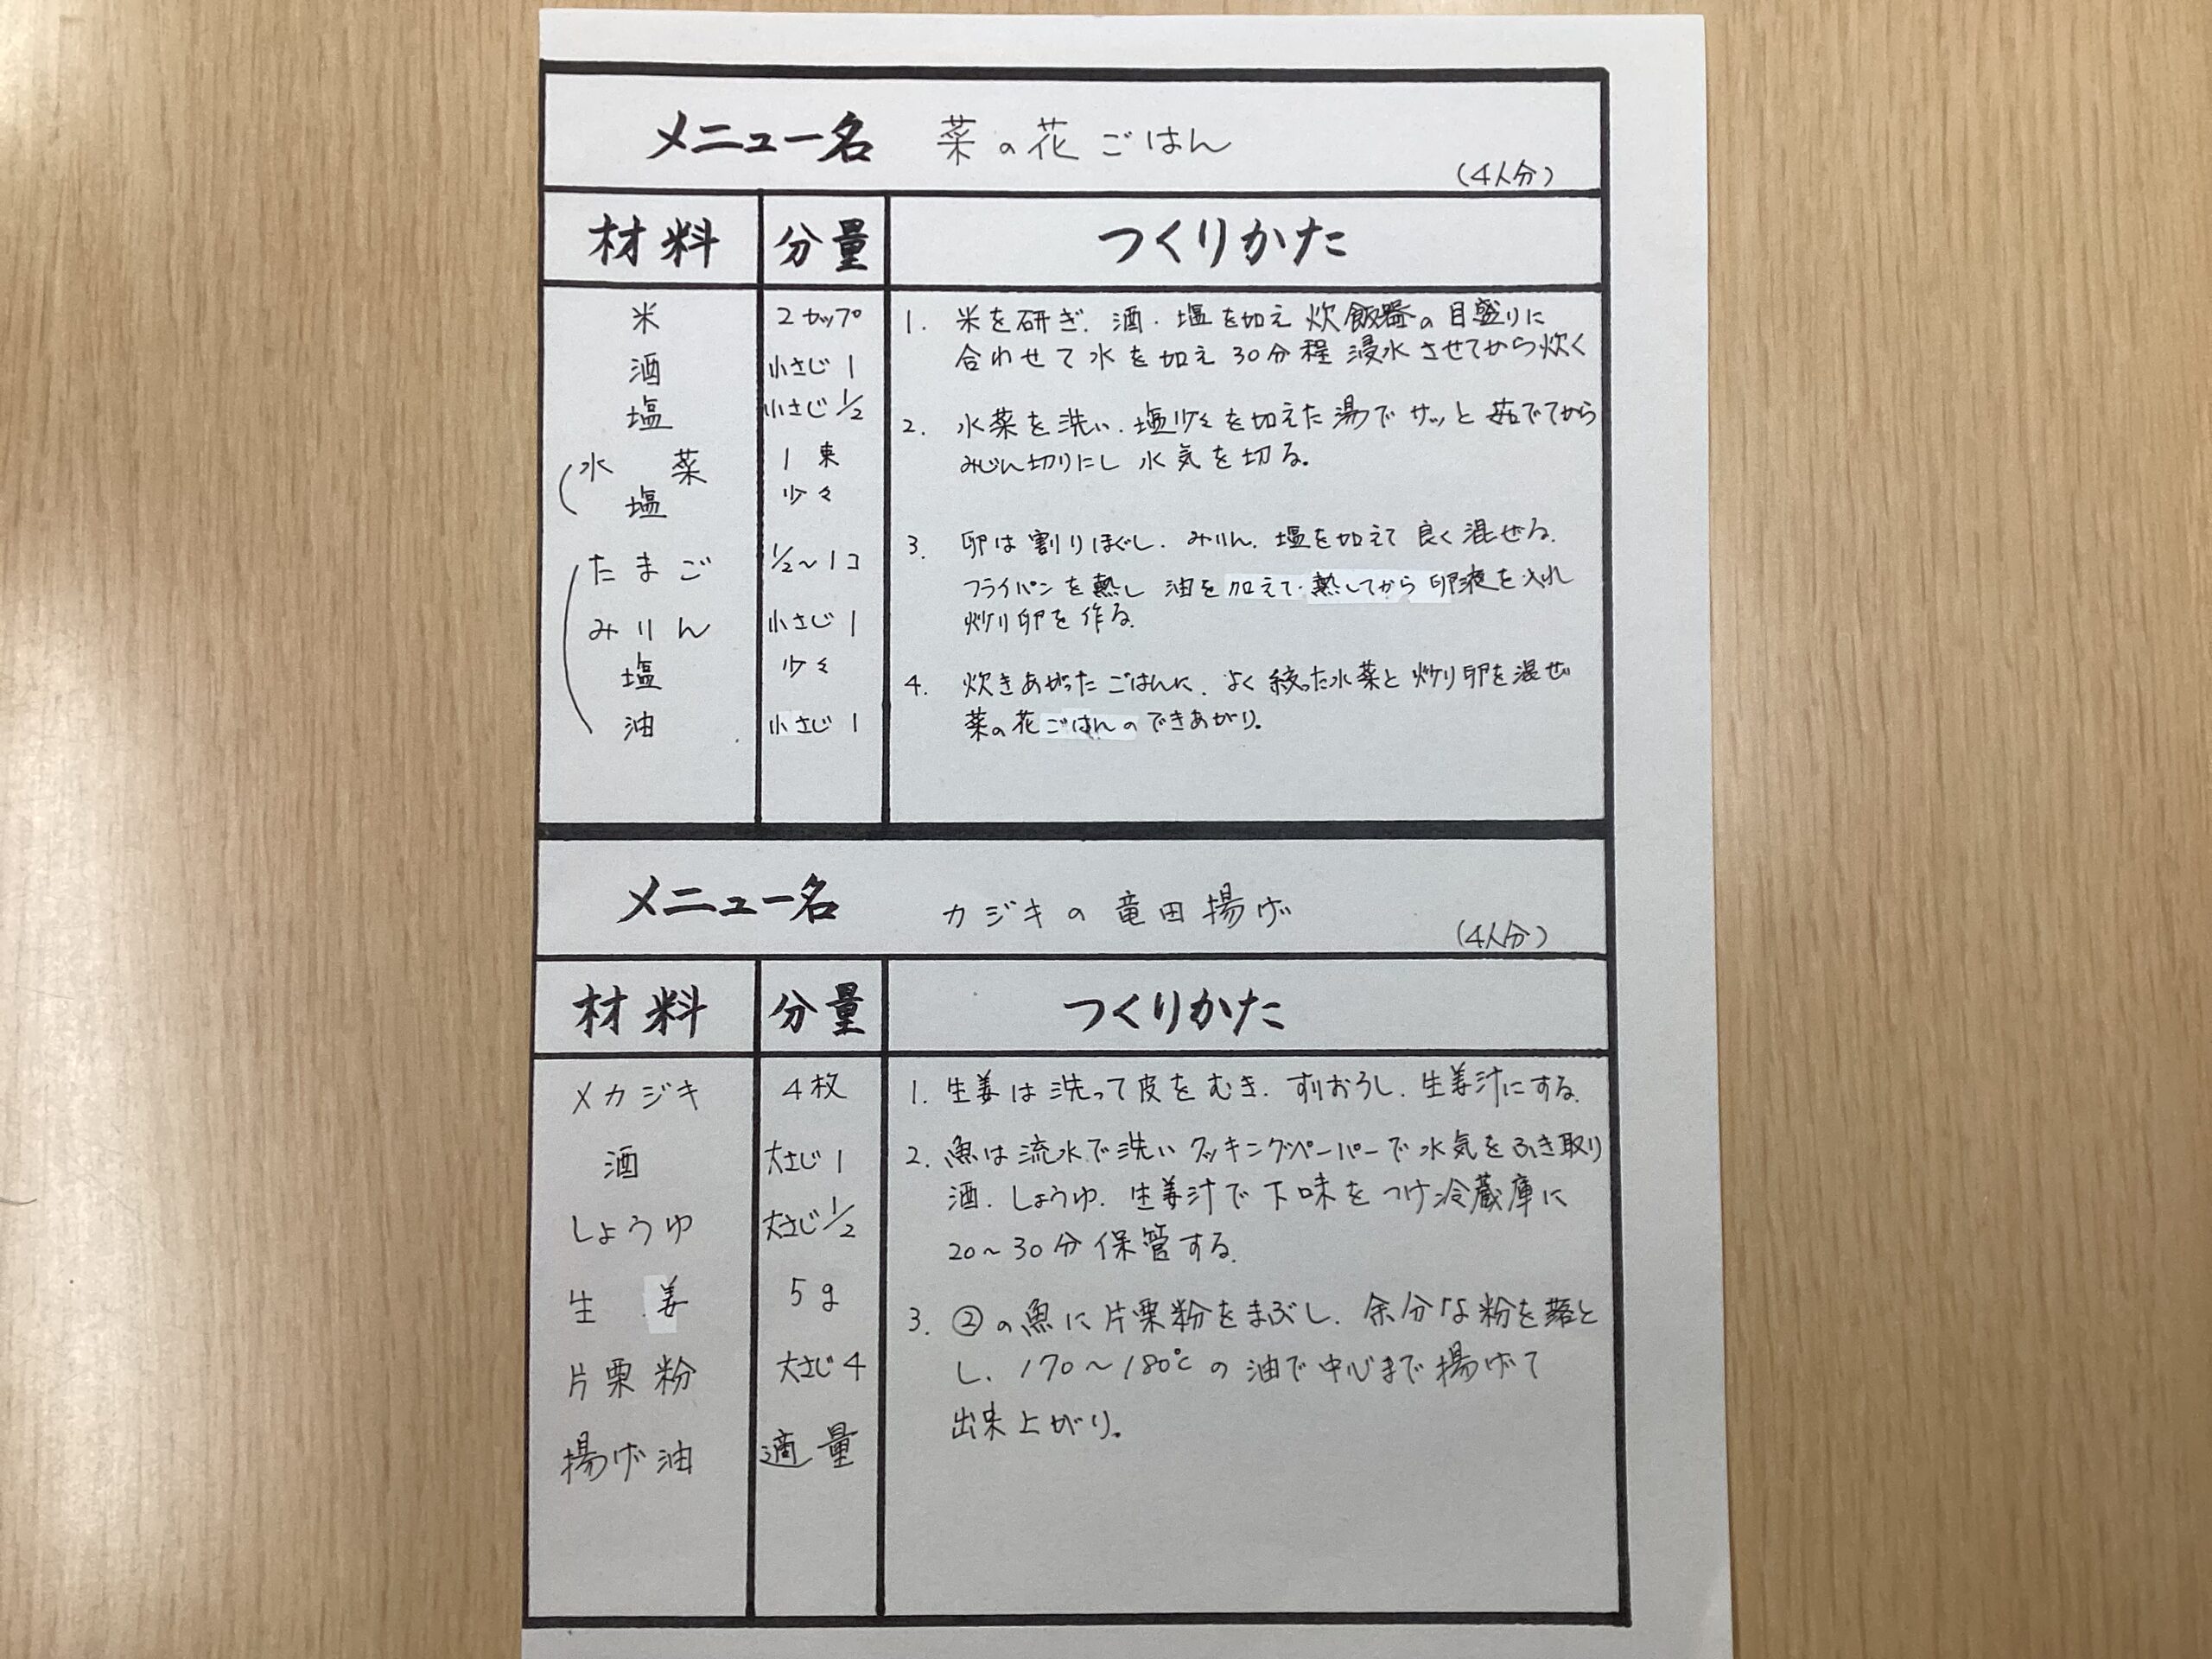 メニュー名 菜の花ごはん
(4人分)
材料 分量 つくりかた
米 2カップ
酒 小さじ1
塩 小さじ1/2
水菜 1束
塩 少々
たまご 1/2～1コ
みりん 小さじ1
塩 少々
油 小さじ1
1. 米を研ぎ、酒・塩を加え炊飯器の目盛りに
合わせて水を加え30分程浸水させてから炊く
2. 水菜を洗い、塩少々を加えた湯でサッと茹でてから
みじん切りにし水気を切る。
3. 卵は割りほぐし、みりん、塩を加えて良く混ぜる。
フライパンを熱し油を加えて熱してから卵液を入れ
炒り卵を作る。
4. 炊きあがったごはんに、よく絞った水菜と炒り卵を混ぜ
菜の花ごはんのできあがり。
メニュー名 カジキの竜田揚げ
(4人分)
材料 分量 つくりかた
メカジキ 4枚
酒 大さじ1
しょうゆ 大さじ1/2
生姜 5g
片栗粉 大さじ4
揚げ油 適量
1. 生姜は洗って皮をむき、すりおろし、生姜汁にする。
2. 魚は流水で洗いクッキングペーパーで水気をふき取り
酒、しょうゆ、生姜汁で下味をつけ冷蔵庫に
20～30分保管する。
3. ②の魚に片栗粉をまぶし、余分な粉を落と
し、170～180℃の油で中心まで揚げて
出来上がり。